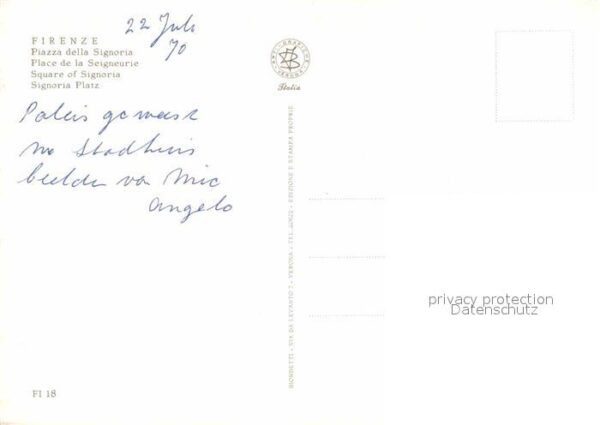 22 Juli
70
FIRENZE
Piazza della Signoria
Place de la Seigneurie
Square of Signoria
Signoria Platz
Paleis geweest
nu Stadhuis
beelden van Mic
angelo
FI 18
ARTI GRAFICHE
VERONA
Italia
BIONDETTI - VIA DA LEVANTO 2 - VERONA - EDIZIONE E STAMPA PROPRIE
privacy protection
Datenschutz